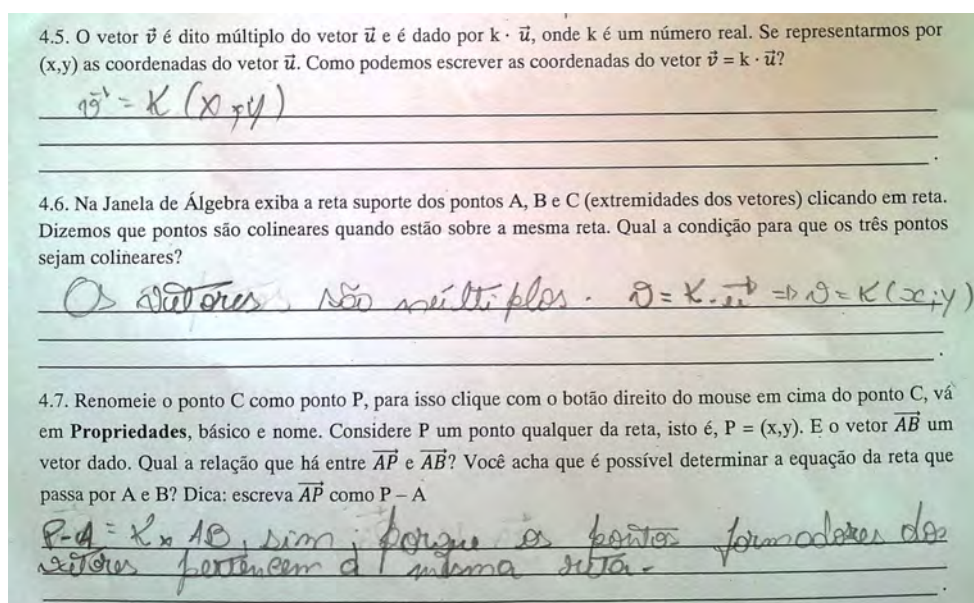 4.5. O vetor v⃗ é dito múltiplo do vetor u⃗ e é dado por k · u⃗, onde k é um número real. Se representarmos por
(x,y) as coordenadas do vetor u⃗. Como podemos escrever as coordenadas do vetor v⃗ = k · u⃗?
v⃗ = K (x, y)
4.6. Na Janela de Álgebra exiba a reta suporte dos pontos A, B e C (extremidades dos vetores) clicando em reta.
Dizemos que pontos são colineares quando estão sobre a mesma reta. Qual a condição para que os três pontos
sejam colineares?
Os vetores são múltiplos. v = K.u⃗ => v = K(x;y)
4.7. Renomeie o ponto C como ponto P, para isso clique com o botão direito do mouse em cima do ponto C, vá
em Propriedades, básico e nome. Considere P um ponto qualquer da reta, isto é, P = (x,y). E o vetor AB⃗ um
vetor dado. Qual a relação que há entre AP⃗ e AB⃗? Você acha que é possível determinar a equação da reta que
passa por A e B? Dica: escreva AP⃗ como P – A
P-A = K x AB, sim, porque os pontos formadores dos
vetores pertencem a mesma reta.